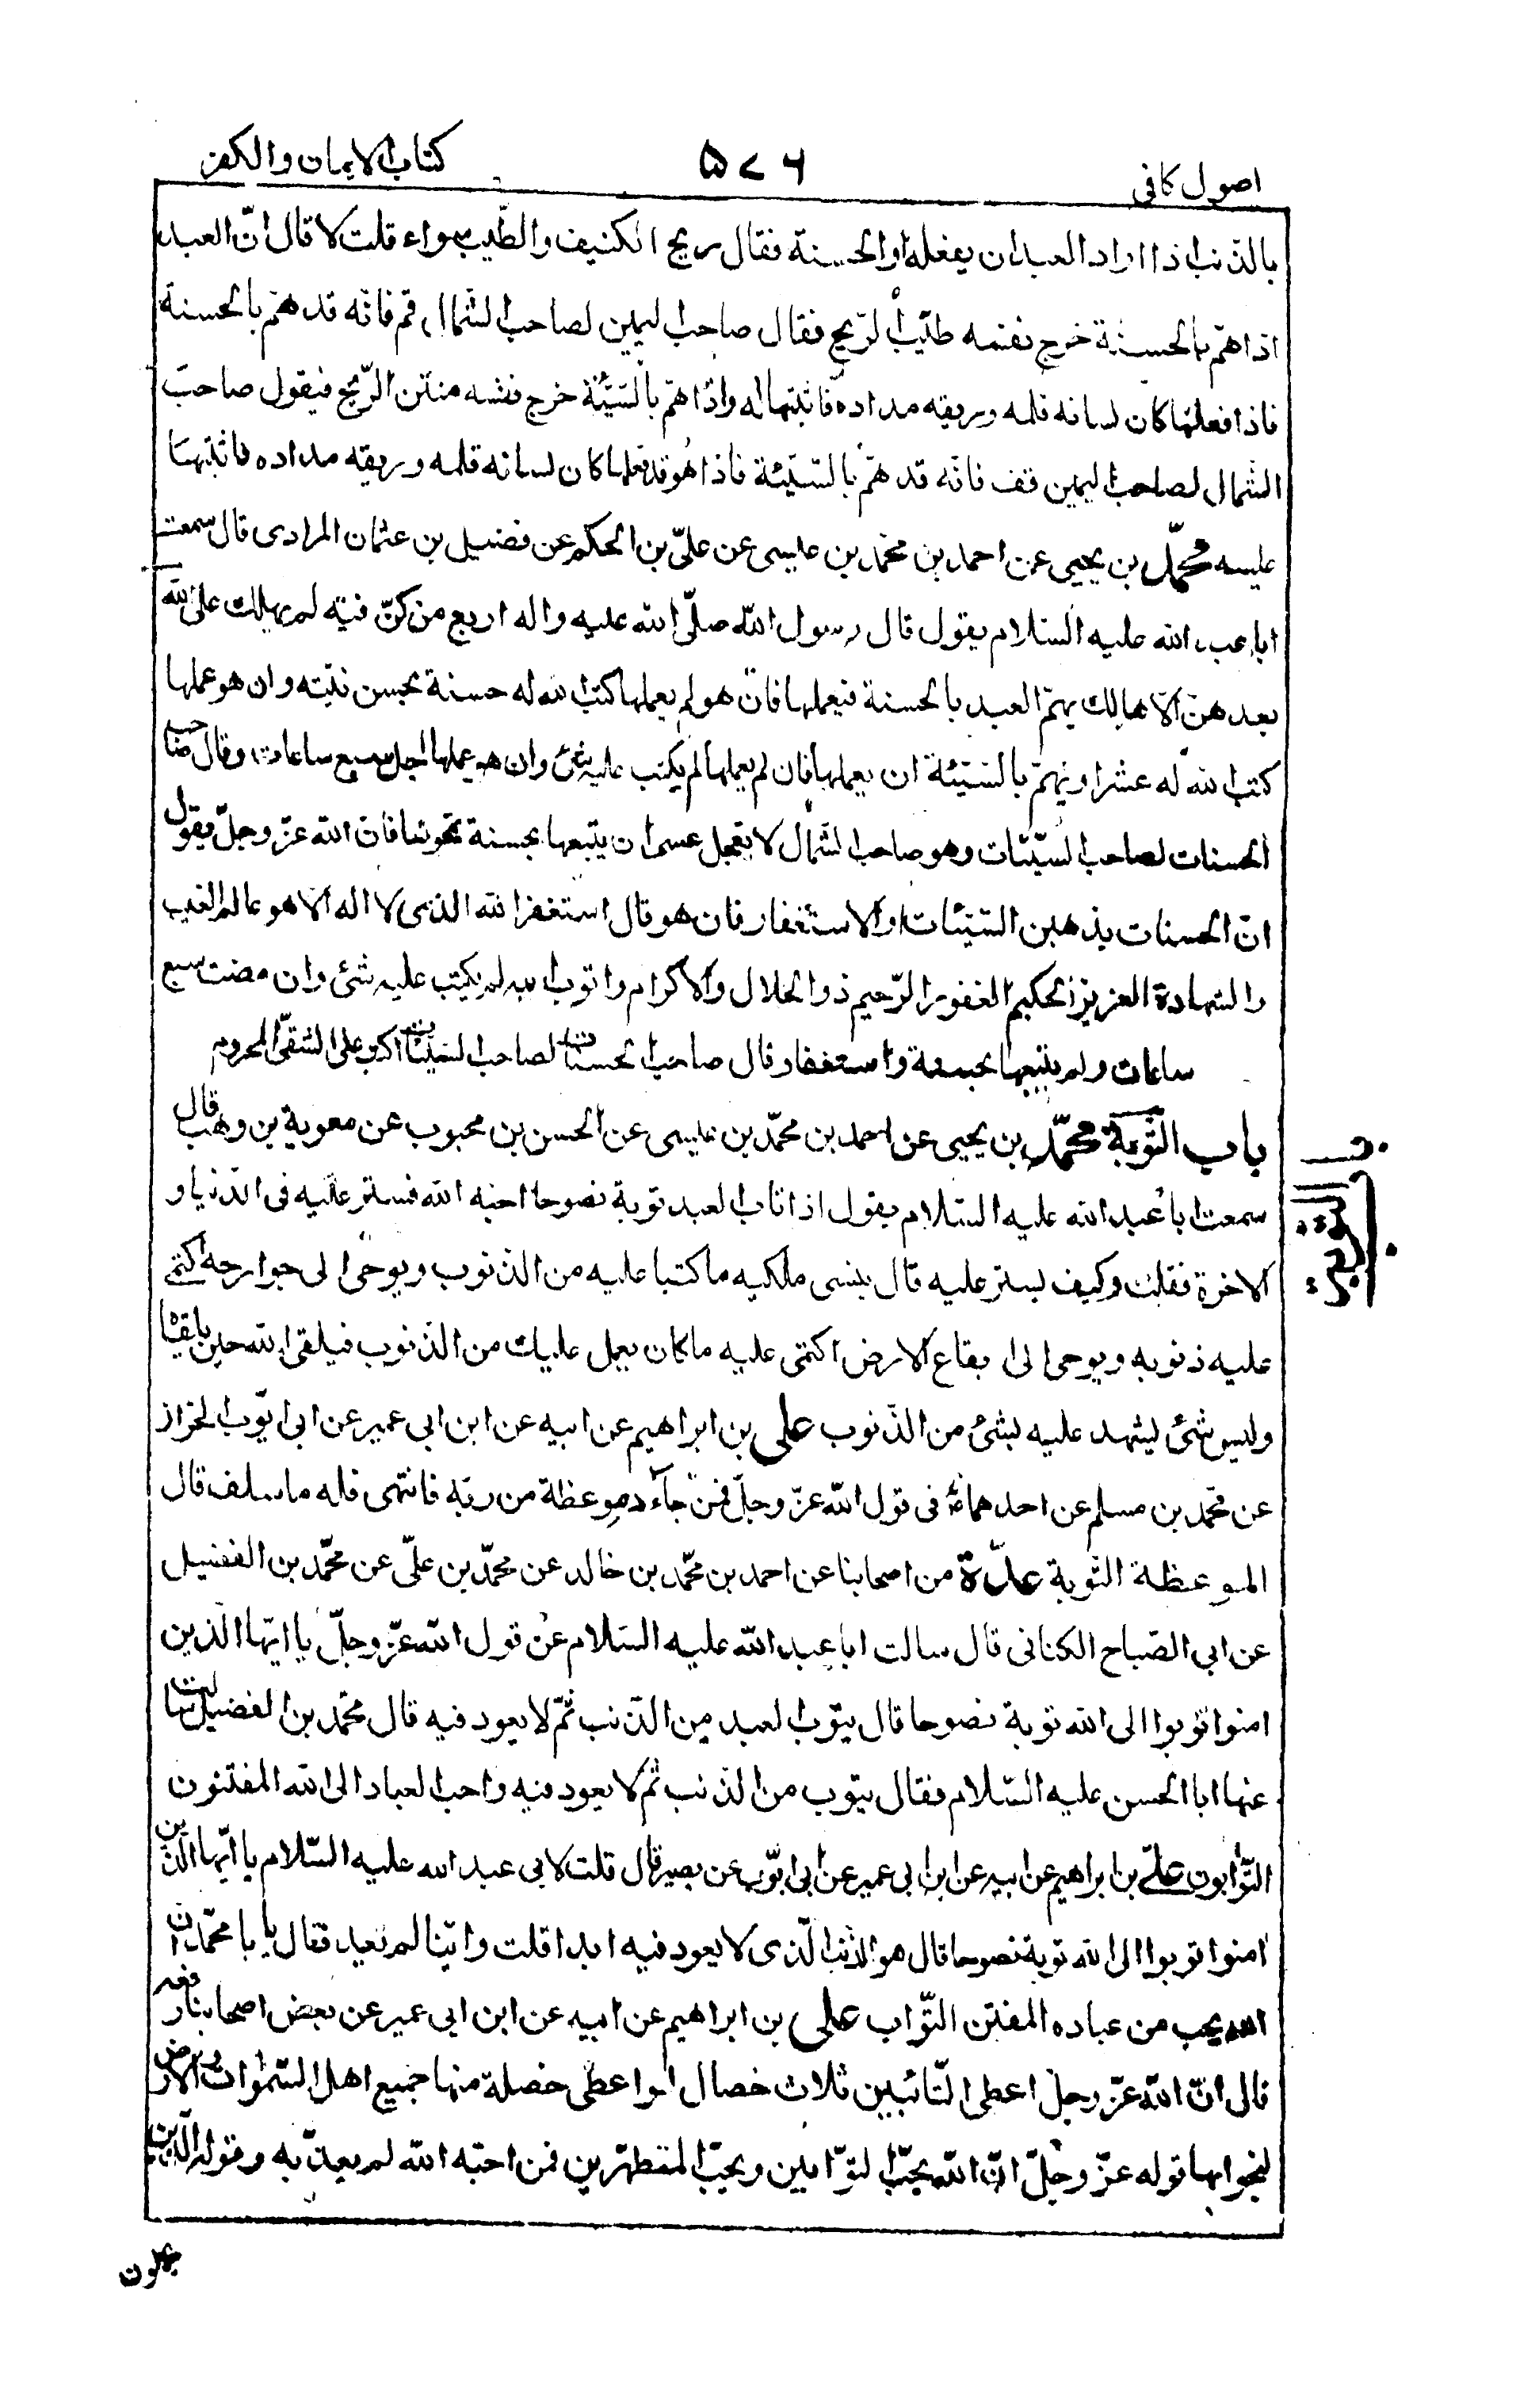 اصول كافى
۵۷۶
كتاب الايمان والكفر
بالذنب اذا اراد العبد ان يفعله او الحسنة فقال ريح الكنيف والطّيب سواء قلت لا قال انّ العبد
اذا همّ بالحسنة خرج نفسه طيّب الرّيح فقال صاحب اليمين لصاحب الشمال قم فانّه قد همّ بالحسنة
فاذا فعلها كان لسانه قلمه وريقه مداده فاثبتها له واذا همّ بالسّيّئة خرج نفسه منتن الرّيح فيقول صاحب
الشمال لصاحب اليمين قف فانّه قد همّ بالسّيّئة فاذا هو قد فعلها كان لسانه قلمه وريقه مداده فاثبتها
عليه محمّد بن يحيى عن احمد بن محمّد بن عيسى عن علىّ بن الحكم عن فضيل بن عثمان المرادى قال سمعت
ابا عبد الله عليه السّلام يقول قال رسول الله صلّى الله عليه واله اربع من كنّ فيه لم يهلك على الله
بعدهنّ الّا هالك يهمّ العبد بالحسنة فيعملها فان هو لم يعملها كتب الله له حسنة بحسن نيّته وان هو عملها
كتب الله له عشرا ويهمّ بالسّيّئة ان يعملها فان لم يعملها لم يكتب عليه شئ وان هو عملها اجل سبع ساعات وقال صاحب
الحسنات لصاحب السّيّئات وهو صاحب الشّمال لا تعجل عسى ان يتبعها بحسنة تمحوها فانّ الله عزّ وجلّ يقول
انّ الحسنات يذهبن السّيّئات او الاستغفار فان هو قال استغفر الله الذى لا اله الّا هو عالم الغيب
والشهادة العزيز الحكيم الغفور الرّحيم ذو الجلال والاكرام واتوب اليه لم يكتب عليه شئ وان مضت سبع
ساعات ولم يتبعها بحسنة واستغفار قال صاحب الحسنات لصاحب السّيّئات اكتب على الشقىّ المحروم
باب التّوبة محمّد بن يحيى عن احمد بن محمّد بن عيسى عن الحسن بن محبوب عن معوية بن وهب قال
سمعت ابا عبد الله عليه السّلام يقول اذا تاب العبد توبة نصوحا احبّه الله فستر عليه فى الدّنيا و
الاخرة فقلت وكيف يستر عليه قال ينسى ملكيه ما كتبا عليه من الذّنوب ويوحى الى جوارحه اكتمى
عليه ذنوبه ويوحى الى بقاع الارض اكتمى عليه ما كان يعمل عليك من الذّنوب فيلقى الله حين يلقاه
وليس شئ يشهد عليه بشئ من الذّنوب على بن ابراهيم عن ابيه عن ابن ابى عمير عن ابى ايّوب الخزاز
عن محمّد بن مسلم عن احدهما ع فى قول الله عزّ وجلّ فمن جآءه موعظة من ربّه فانتهى فله ما سلف قال
الموعظة التّوبة عدّة من اصحابنا عن احمد بن محمّد بن خالد عن محمّد بن علىّ عن محمّد بن الفضيل
عن ابى الصّباح الكنانى قال سالت ابا عبد الله عليه السّلام عن قول الله عزّ وجلّ يا ايّها الّذين
امنوا توبوا الى الله توبة نصوحا قال يتوب العبد من الذّنب ثمّ لا يعود فيه قال محمّد بن الفضيل سالت
عنها ابا الحسن عليه السّلام فقال يتوب من الذنب ثمّ لا يعود فيه واحبّ العباد الى الله المفتنون
التّوّابون علىّ بن ابراهيم عن ابيه عن ابن ابى عمير عن ابى ايّوب عن بصير قال قلت لابى عبد الله عليه السّلام يا ايّها الّذين
امنوا توبوا الى الله توبة نصوحا قال هو الذّنب الّذى لا يعود فيه ابدا قلت وايّنا لم يعد فقال يا با محمّد انّ
الله يحب من عباده المفتن التّواب على بن ابراهيم عن ابيه عن ابن ابى عمير عن بعض اصحابنا رفعه
قال انّ الله عزّ وجلّ اعطى التّائبين ثلاث خصال لو اعطى خصلة منها جميع اهل السّموات والارض
لنجوا بها قوله عزّ وجلّ انّ الله يحبّ التوّابين ويحبّ المتطهّرين فمن احبّه الله لم يعذّبه وقوله الّذين
يحملون